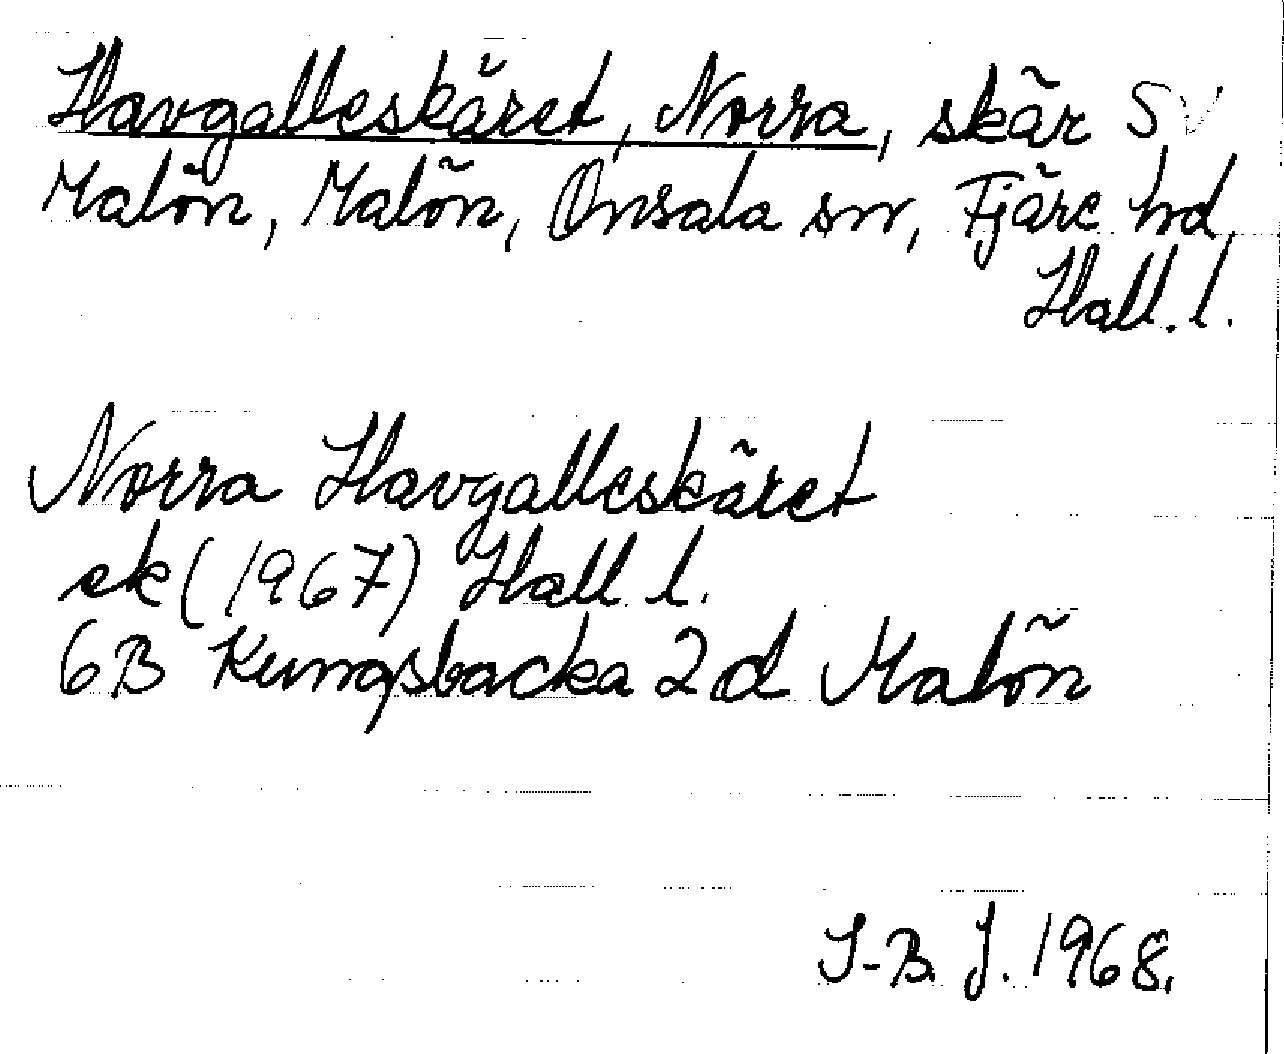 Havgalleskäret, Norra, skär SV
Malön, Malön, Onsala sn, Fjäre hd,
Hall. l.
Norra Havgalleskäret
ek (1967) Hall. l.
6B Kungsbacka 2d Malön
I-B. J. 1968.